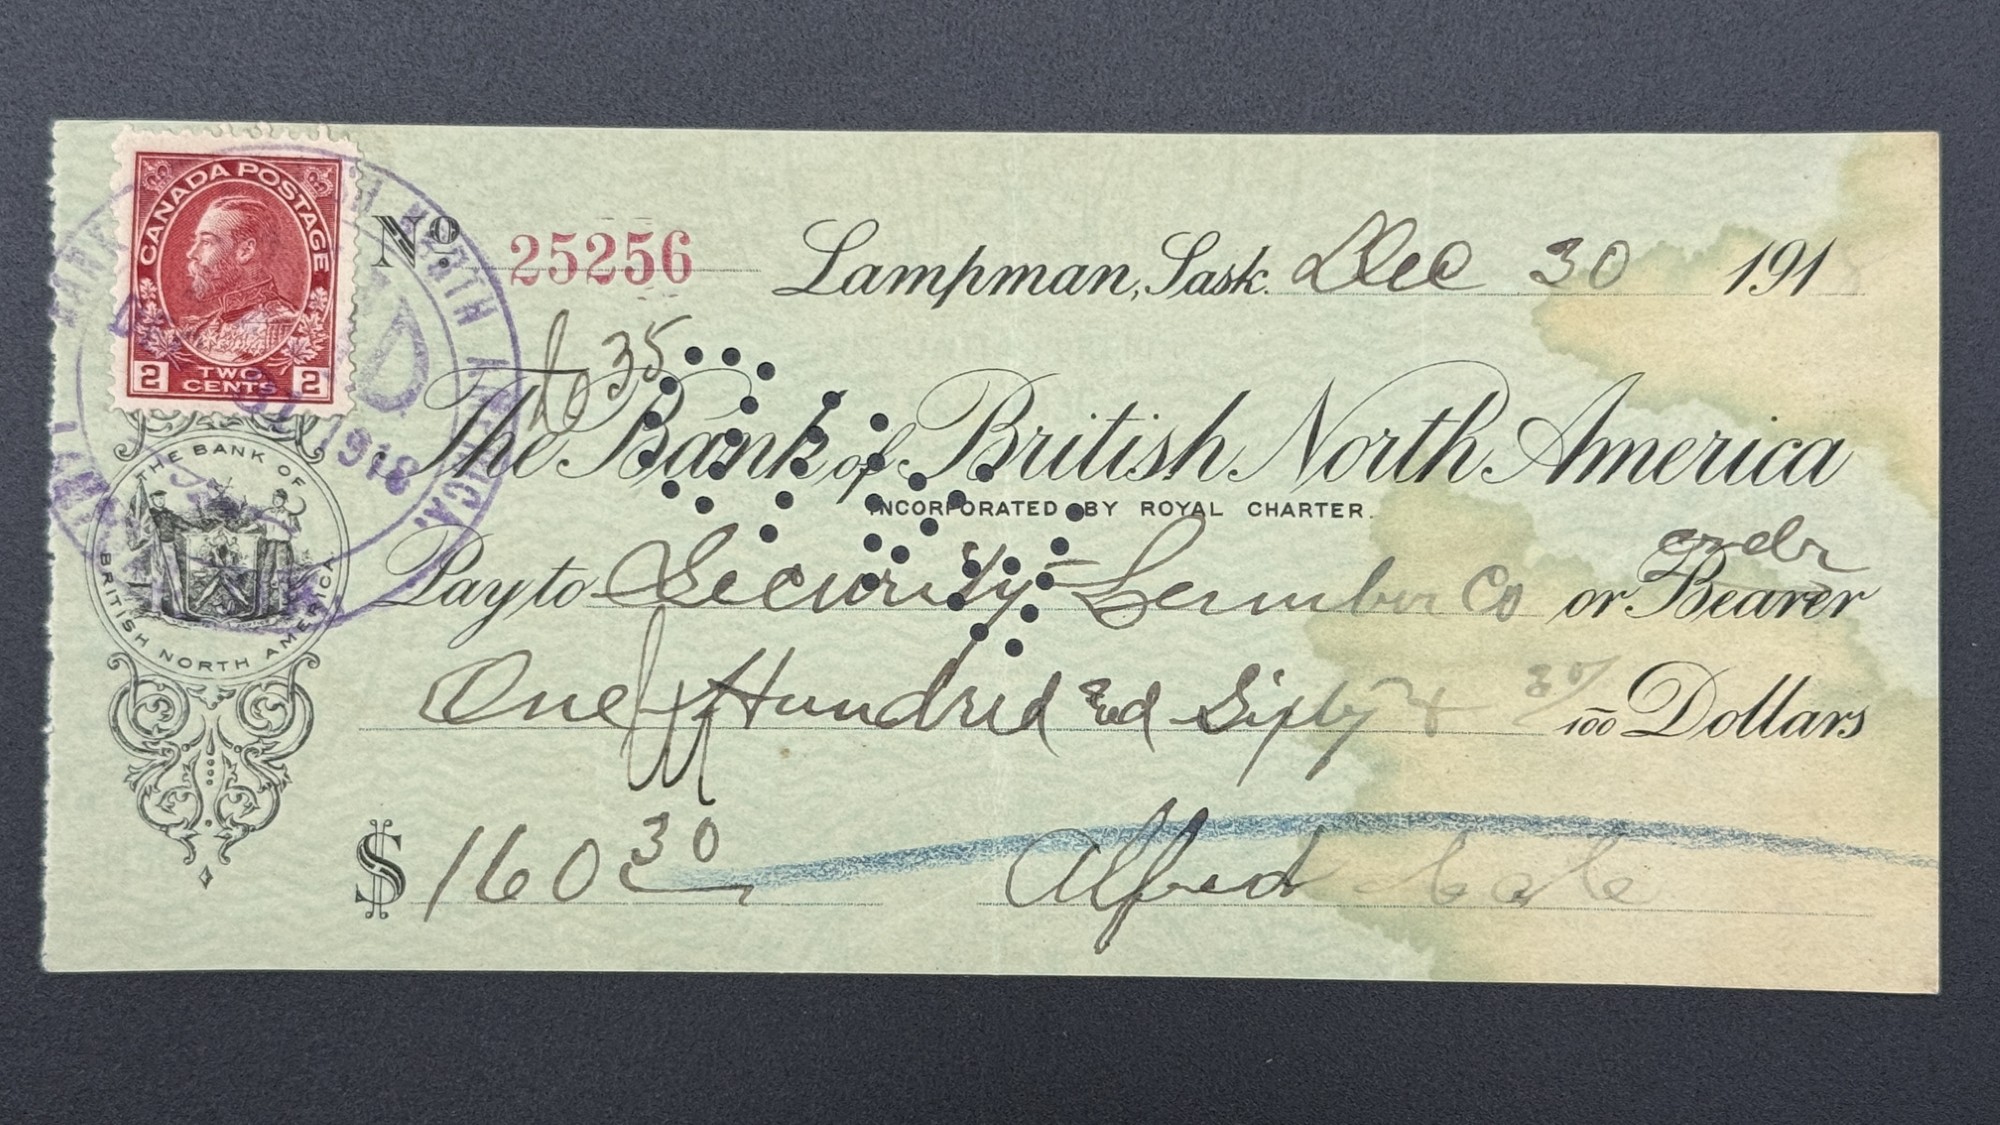 CANADA POSTAGE
2 TWO CENTS 2
No. 25256
Lampman, Sask. Dec 30 191
35
The Bank of British North America
INCORPORATED BY ROYAL CHARTER.
order
Pay to Security Lumber Co or Bearer
One Hundred and Sixty & 30/100 Dollars
$ 160 30
Alfred Cole
THE BANK OF BRITISH NORTH AMERICA
NORTH AMERICA
PAID
1918